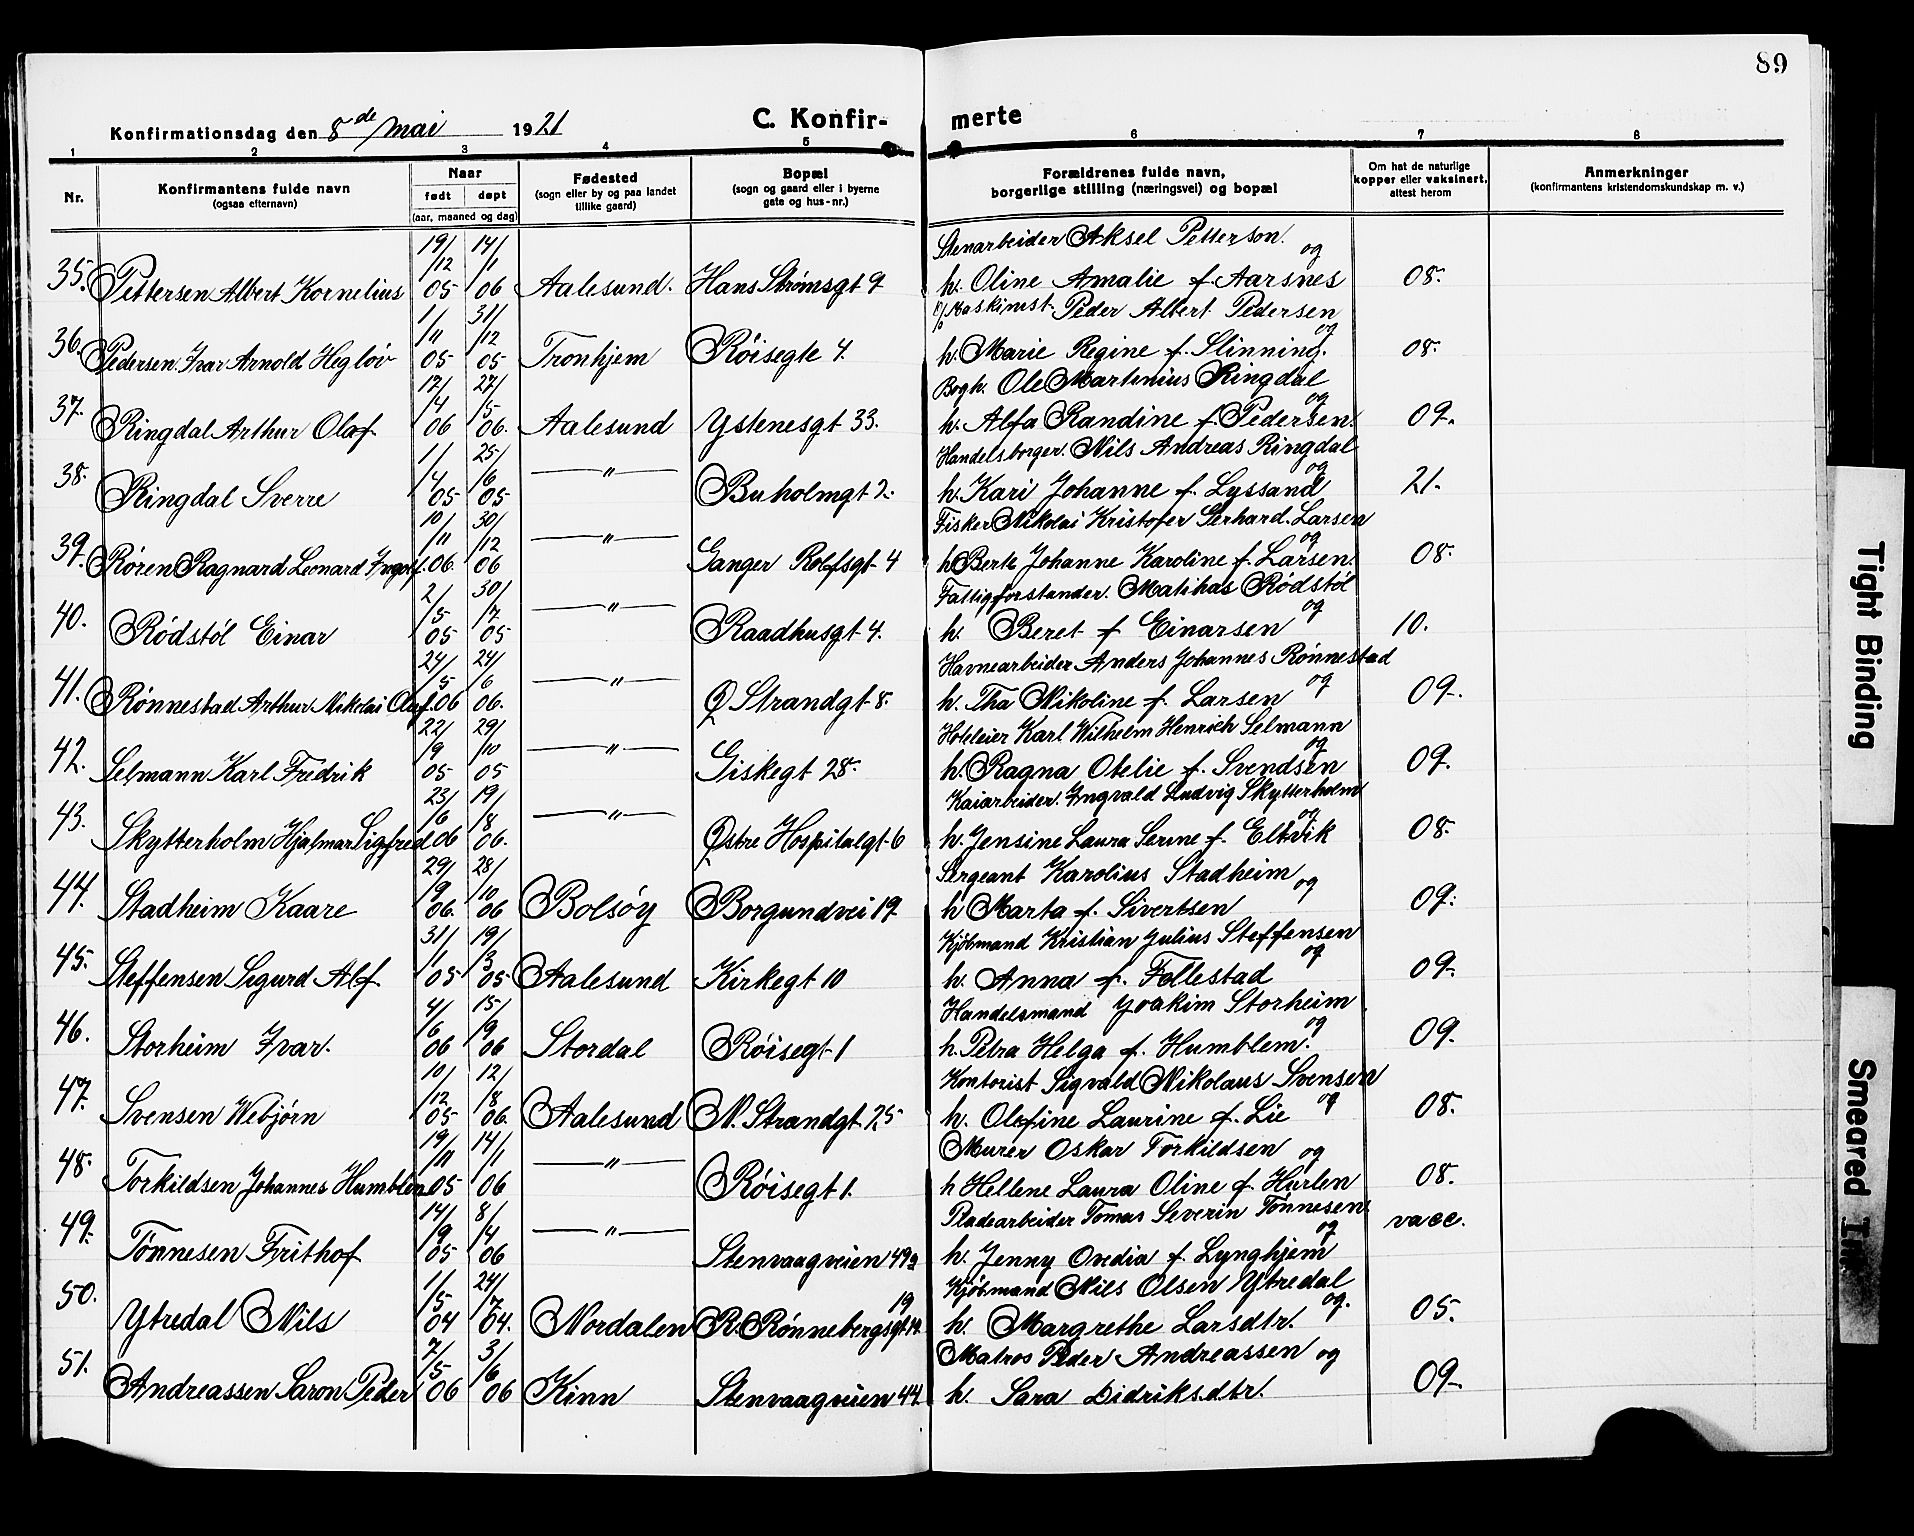 89
Konfirmationsdag den 8de mai 1921 C. Konfir- merte
1 2 3 4 5 6 7 8
Nr. Konfirmantens fulde navn (ogsaa efternavn) Naar født døpt (aar, maaned og dag) Fødested (sogn eller by og paa landet tillike gaard) Bopæl (sogn og gaard eller i byerne gate og hus-nr.) Forældrenes fulde navn, borgerlige stilling (næringsvei) og bopæl Om hat de naturlige kopper eller vaksinert, attest herom Anmerkninger (konfirmantens kristendomskundskap m. v.)
19/ 14/ Stenarbeider Aksel Petterson. og
35. Pettersen Albert Kornelius /12 05 /1 06 Aalesund. Hans Strømsgt 9 h. Oline Amalie f. Aarsnes 08.
1/ 31/ Maskinest. Peder Albert Pedersen og
36. Pedersen. Ivar Arnold Hegløv /11 05 /12 05 Tronhjem Røisegte 4. h. Marie Regine f. Slinning. 08.
17/ 27/ Bogh. Ole Martinius Ringdal og
37. Ringdal Arthur Olaf /4 06 /5 06. Aalesund Ystenesgt 33. h. Alfa Randine f. Pedersen. 09.
1/ 25/ Handelsborger. Nils Andreas Ringdal og
38. Ringdal Sverre /4 05 /6 05 — " — Buholmgt 2. h. Kari Johanne f. Lyssand 21.
10/ 30/ Fisker Nikolai Kristofer Gerhard. Larsen og
39. Røren Ragnard Leonard Ingolf. /11 06 /12 06 — " — Ganger Rolfsgt 4 h Berte Johanne Karoline f. Larsen. 08.
2/ 30/ Fattigforstander. Mathias Rødstøl og
40. Rødstøl Einar /5 05 /7 05 — " — Raadhusgt 4. h. Beret f. Einarsen 10.
24/ 24/ Havnearbeider Anders Johannes Rønnestad og
41. Rønnestad Arthur Nikolai Olaf. /5 06 /6 06. — " — Ø Strandgt 8. h. Tha Nikoline f. Larsen 09.
22/ 29/ Hoteleier Karl Wilhelm Henrich Selmann og
42. Selmann Karl Fredrik /9 05 /10 05 — " — Giskegt 28. h. Ragna Otelie f. Svendsen 09.
23/ 19/ Kaiarbeider. Ingvald Ludvig Skytterholm og
43. Skytterholm Hjalmar Sigfred /6 06 /8 06. — " — Østre Hospitalgt 6 h. Jensine Laura Serine f. Eltvik 08.
29/ 28/ Sergeant Karolius Stadheim og
44. Stadheim Kaare /9 06. /10 06 Bolsøy Borgundvei 19 h Marta f. Sivertsen 09.
31/ 19/ Kjøbmand Kristian Julius Steffensen og
45. Steffensen Sigurd Alf /1 05 /3 05 Aalesund Kirkegt 10 h. Anna f. Follestad 09.
4/ 15/ Handelsmand Joakim Storheim og
46. Storheim Ivar. /6 06 /9 06 Stordal Røisegt 1 h. Petra Helga f. Humblem. 09.
10/ 12/ Kontorist Sigvald Nikolaus Svensen og
47. Svensen Webjørn /12 05 /8 06. Aalesund N. Strandgt. 25 h. Olefine Laurine f. Lie 08.
19/ 14/ Murer Oskar Torkildsen og
48. Torkildsen Johannes Humblen /11 05 /1 06 — " — Røisegt 1. h Hellene Laura Oline f. Hurlen 08.
14/ 8/ Pladearbeider Tomas Severin Tønnesen og
49. Tønnesen Frithof /9 05 /4 06 — " — Stenvaagveien 49a h. Jenny Ovedia f. Lynghjem vacc.
1/ 24/ Kjøbmand Nils Olsen Ytredal og.
50. Ytredal Nils /5 04 /7 04. Nordalen R. Rønnebergsgt. 19 h. Margrethe Larsdtr. 05.
7/ 3/ Matros Peder Andreassen og
51. Andreassen Saron Peder /5 06 /6 06 Kinn Stenvaagveien 44 h. Sara Didriksdtr. 09.
Tight Binding
Smeared Ink